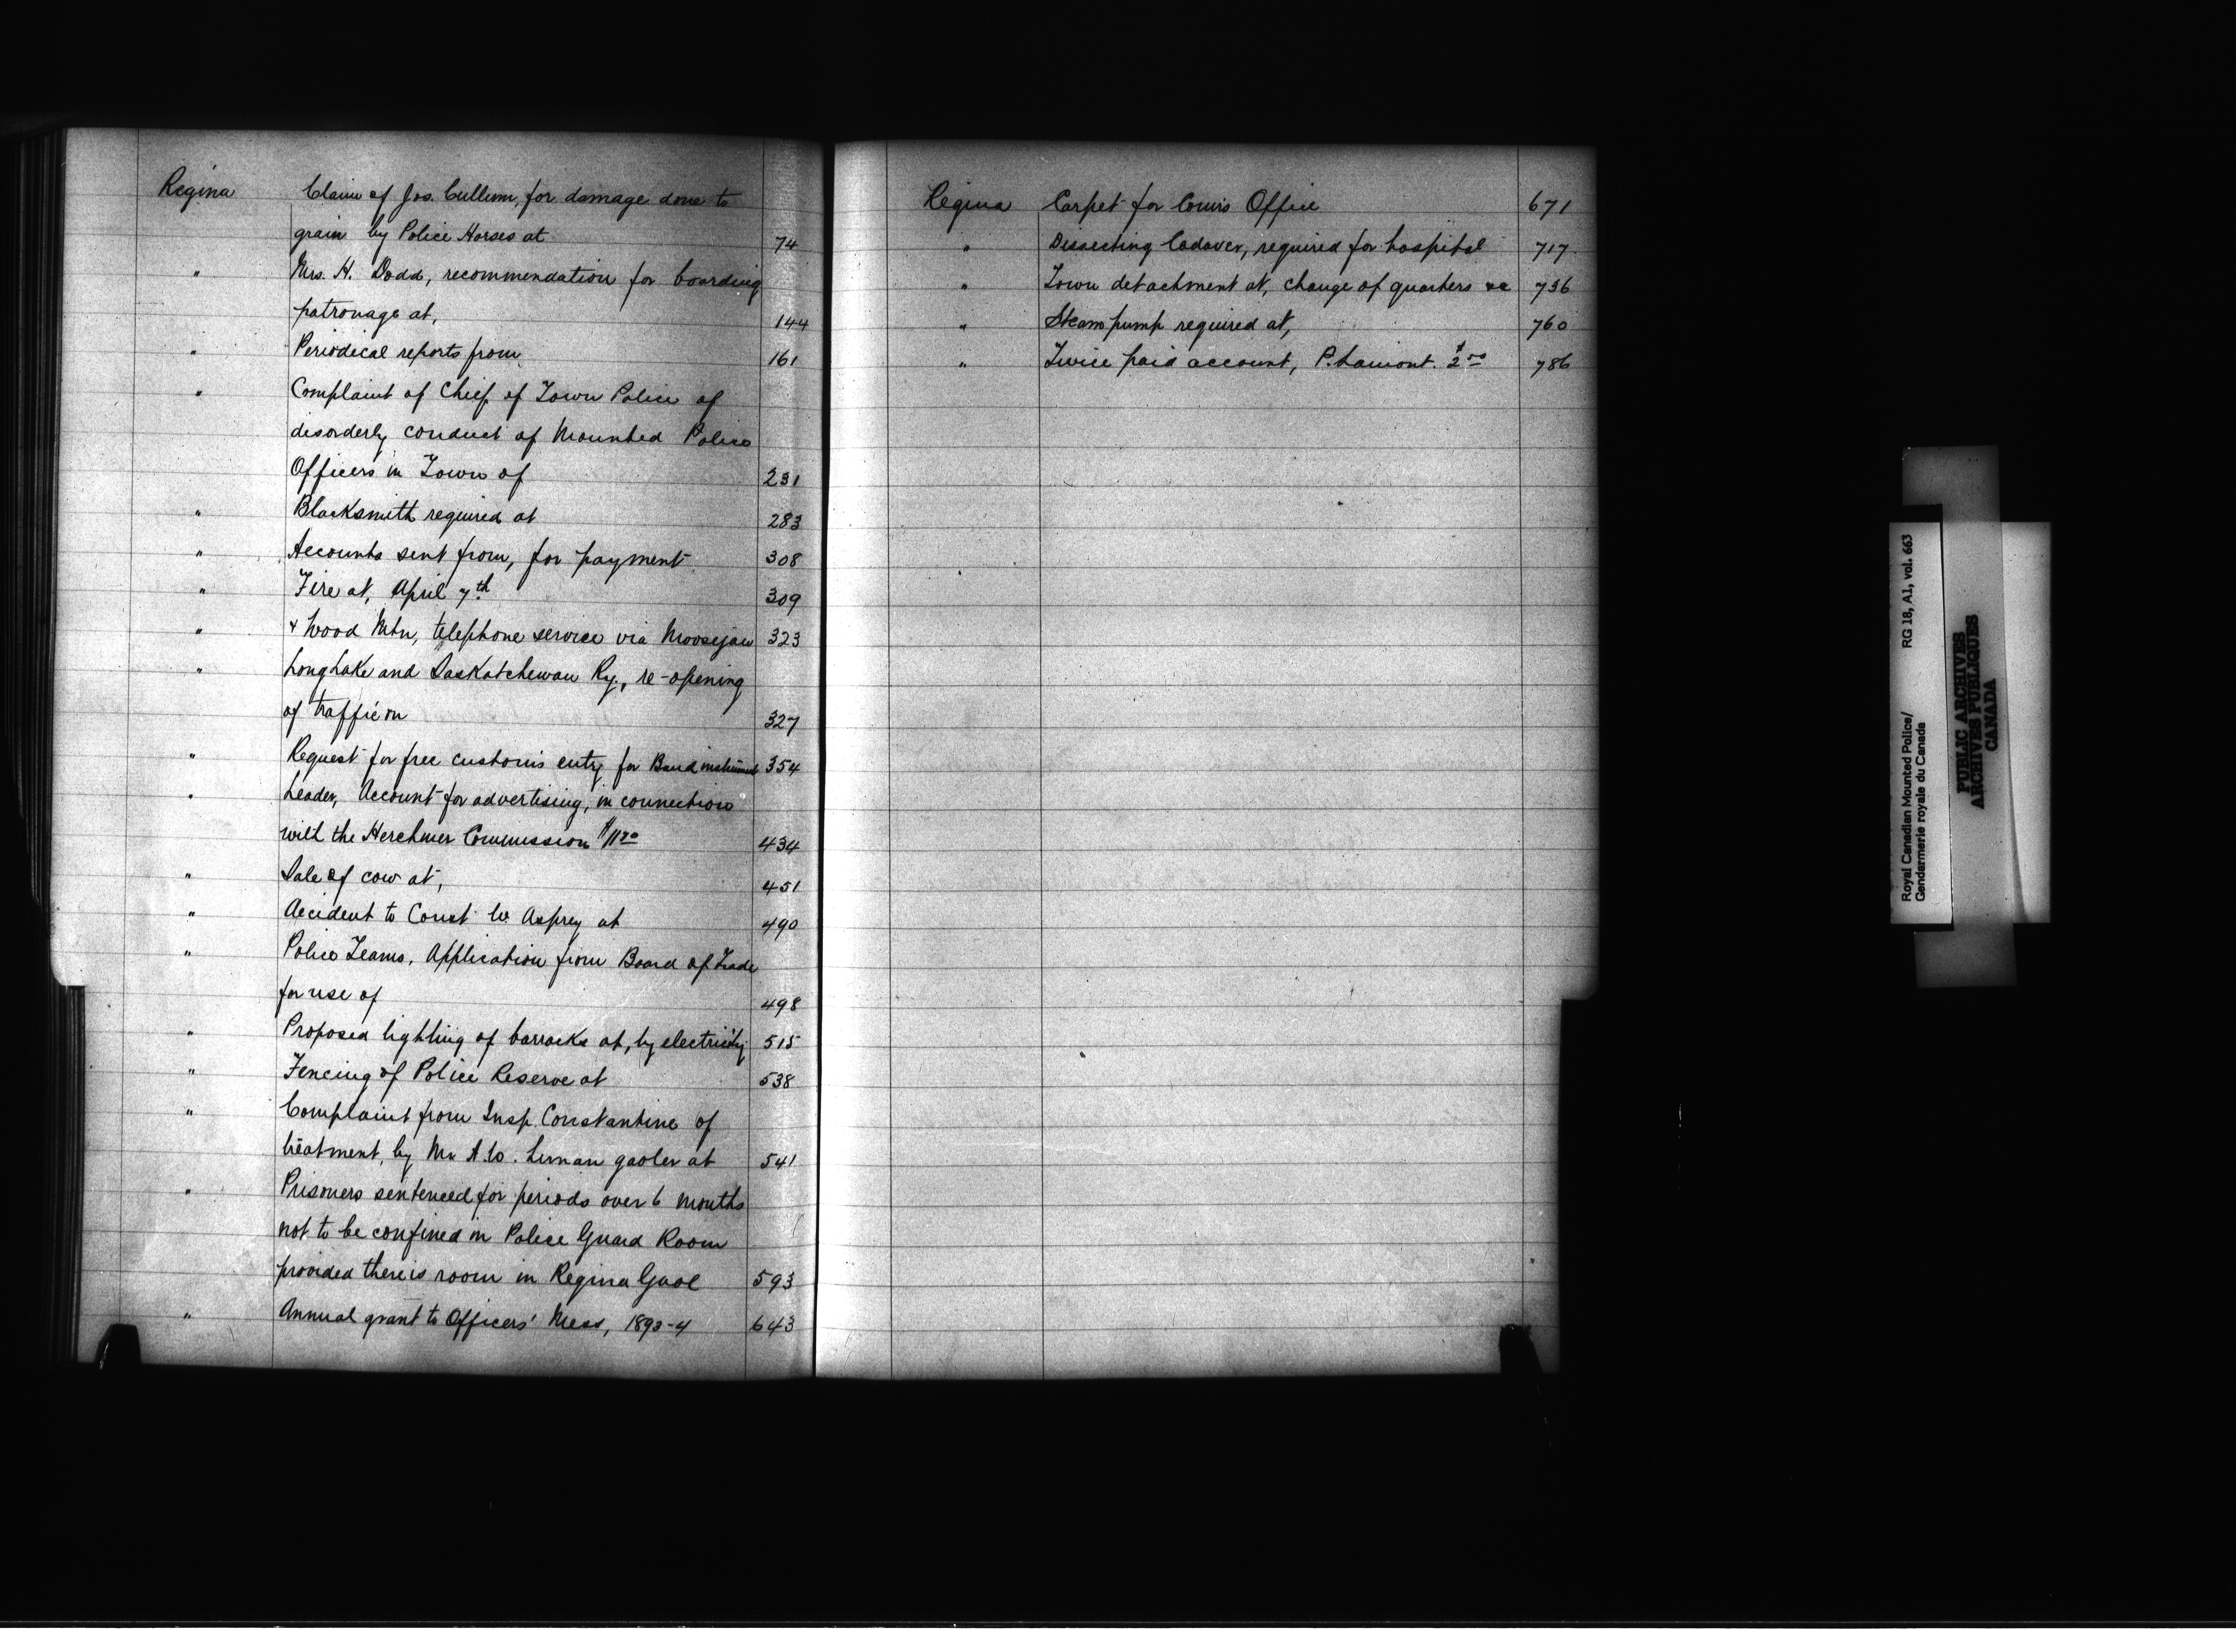 Regina Claim of Jos. Cullum, for damage done to
grain by Police Horses at 74
" Mrs. H. Dodd, recommendation for boarding
patronage at, 144
" Periodical reports from 161
" Complaint of Chief of Town Police of
disorderly conduct of Mounted Police
Officers in Town of 231
" Blacksmith required at 283
" Accounts sent from, for payment 308
" Fire at, April 7th 309
" & Wood Mtn, telephone service via Moosejaw 323
" Long Lake and Saskatchewan Ry., re-opening
of traffic on 327
" Request for free customs entry for Band instruments 354
" Leader, Account for advertising, in connection
with the Herchmer Commission $11 434
" Sale of cow at, 451
" Accident to Const W. Asprey at 490
" Police Teams, Application from Board of Trade
for use of 498
" Proposed lighting of barracks at, by electricity 515
" Fencing of Police Reserve at 538
" Complaint from Insp. Constantine of
treatment, by Mr. gaoler at 541
" Prisoners sentenced for periods over 6 months
not to be confined in Police Guard Room
provided there is room in Regina Gaol 593
" Annual grant to Officers' Mess, 1893-4 643
Regina Carpet for Comr's Office 671
" Dissecting Cadaver, required for hospital 717
" Town detachment at, change of quarters &c 736
" Steam pump required at, 760
" Twice paid account, P. Lamont. $2.00 786
Royal Canadian Mounted Police/ RG 18, A1, vol. 663
Gendarmerie royale du Canada
PUBLIC ARCHIVES
ARCHIVES PUBLIQUES
CANADA